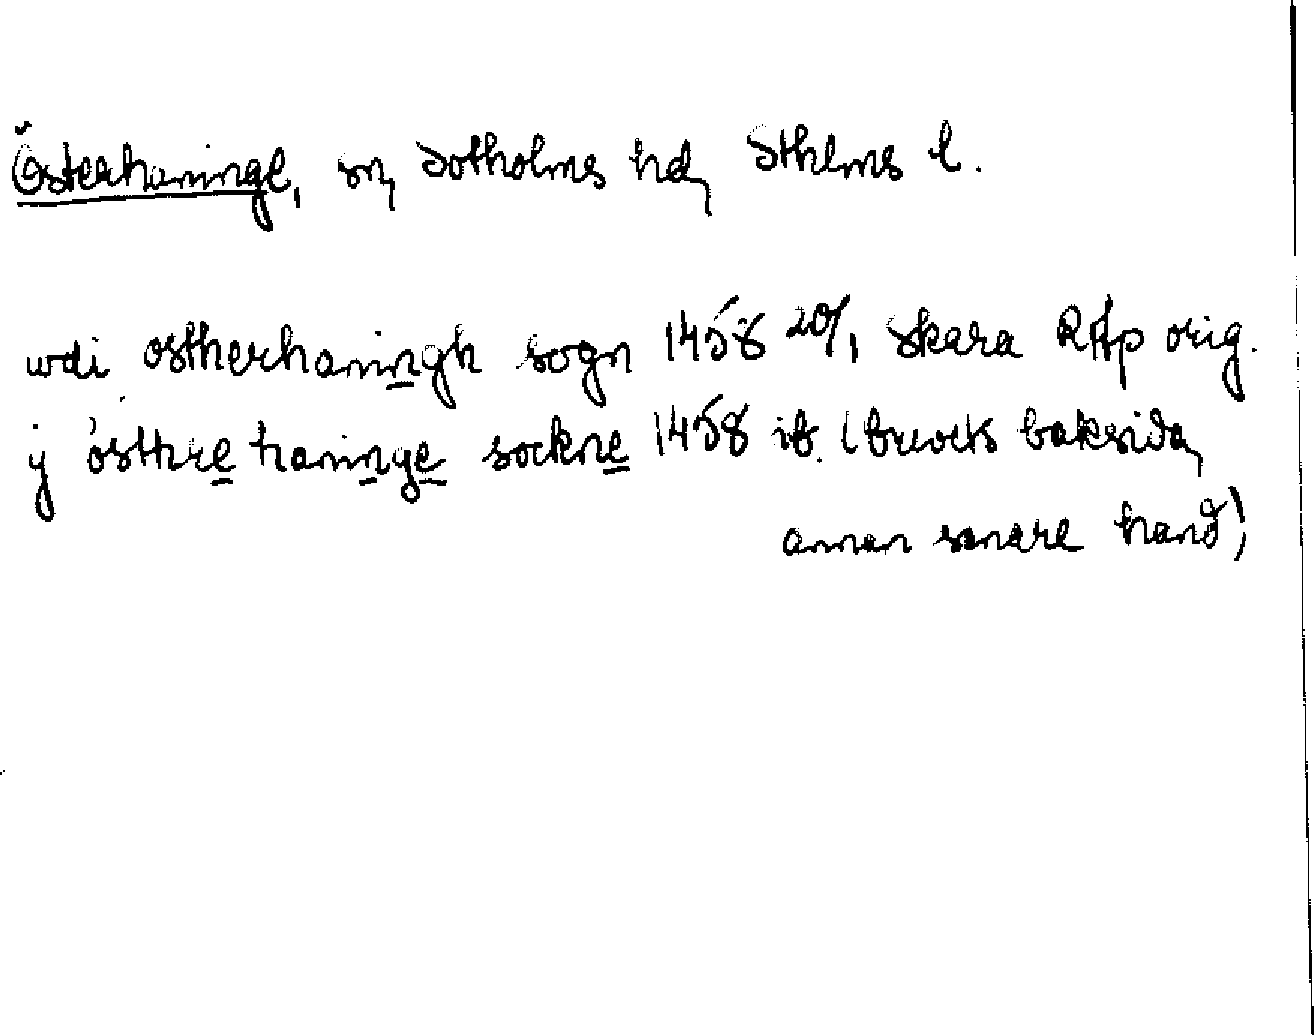 Österhaninge, sn, Sotholms hd, Sthlms l.
wdi ostherhaningh sogn 1458 20/1 Skara RAp orig.
ij östhre haninge sockne 1458 ib. (brevets baksida,
annan senare hand)